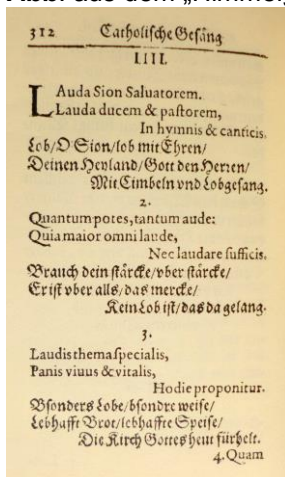 312 Catholische Gesäng
LIII.
LAuda Sion Saluatorem.
Lauda ducem & pastorem,
In hymnis & canticis.
Lob/O Sion/lob mit Ehren/
Deinen Heyland/Gott den Herren/
Mit Cimbeln vnd Lobgesang.
2.
Quantum potes, tantum aude:
Quia maior omni laude,
Nec laudare sufficis.
Brauch dein stärcke/vber stärcke/
Er ist vber alls/das mercke/
Kein Lob ist/das da gelang.
3.
Laudis thema specialis,
Panis viuus & vitalis,
Hodie proponitur.
Bsonders Lobs/bsondre weise/
Lebhafft Brot/lebhaffte Speise/
Die Kirch Gottes heut fürhelt.
4. Quam